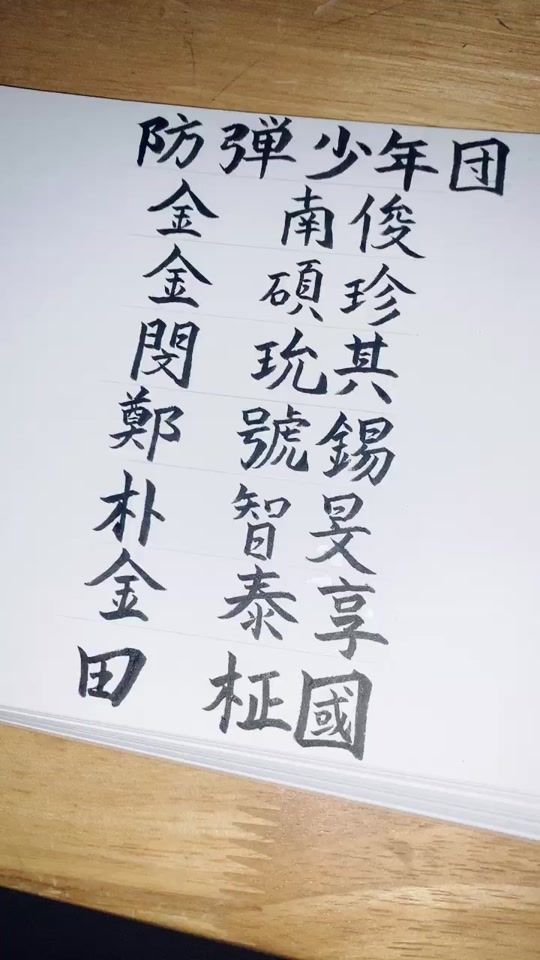 防弾少年团
金 南俊
金 碩珍
閔 玧其
鄭 號錫
朴 智旻
金 泰享
田 柾國